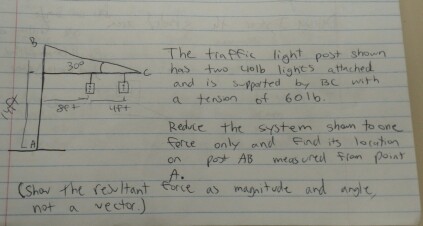 B
The traffic light post shown
30°
C
has two 40lb lights attached
and is supported by BC with
8ft
4ft
a tension of 60lb.
Reduce the system shown to one
force only and find its location
A
on post AB measured from point
A.
(show the resultant force as magnitude and angle,
not a vector.)